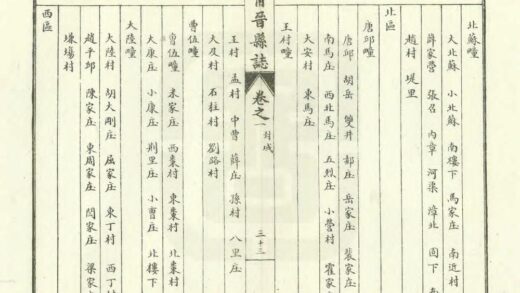 北蘇疃
大北蘇 小北蘇 南樓下 馬家庄 南近村
薛家營 張召 內章 河渠 漳北 圓下
趙村 堤里
北區
唐邱疃
唐邱 胡岳 雙井 郝庄 岳家庄 裴家庄
南馬庄 西北馬庄 五烈庄 小營村 霍家
大安村 東馬庄
王村疃
晉縣誌 卷之一 封域 三十三
王村 孟村 中曹 薛庄 孫村 八里庄
大及村 石柱村 劉路村
曹伍疃
曹伍疃 米家庄 西棗村 東棗村 北棗村
大康庄 小康庄 荆里庄 小曹庄 北樓下
大陸疃
大陸村 胡大剛庄 屈家庄 東丁村 西丁村
趙平邱 陳家庄 東周家庄 閆家庄 梁家
塲村
西區